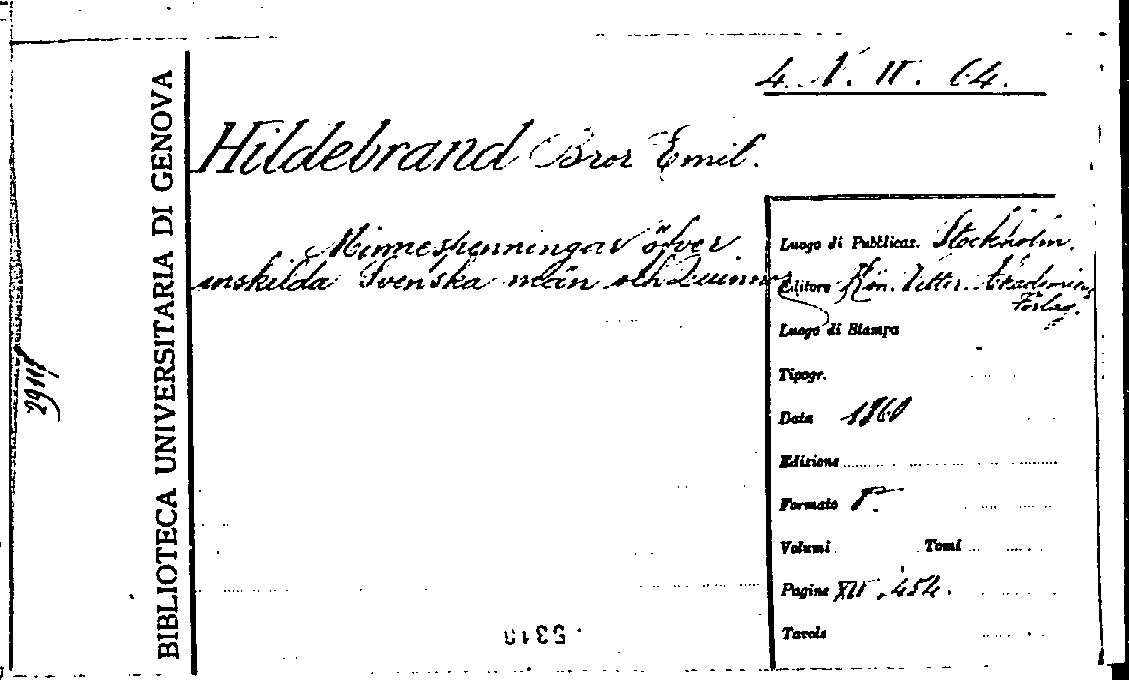 4. V. II. 64.
BIBLIOTECA UNIVERSITARIA DI GENOVA
Hildebrand Bror Emil.
Minnespenningar öfver
enskilda Svenska män och Quinnor
Luogo di Pubblicaz. Stockholm.
Editore Kön. Vitter. Akademiens
Förlag.
Luogo di Stampa
Tipogr.
Data 1860
Edizione
Formato 8°
Volumi Tomi
Pagine XII, 454.
Tavole
5319